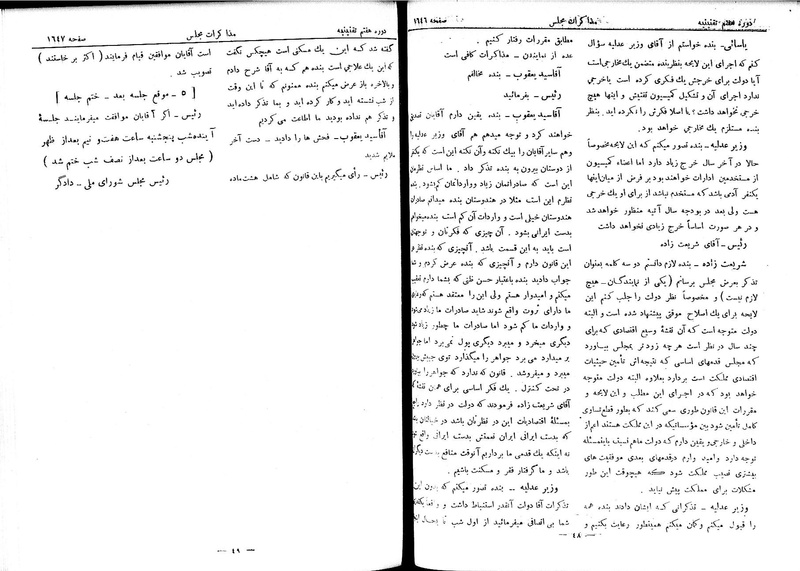 دوره هفتم تقنینیه
مذاکرات مجلس
صفحه ١٦٤٦
یاسائی - بنده خواستم از آقای وزیر عدلیه سؤال
کنم که اجرای این لایحه بنظر بنده متضمن یك مخارجی است
آیا دولت برای خرجش یك فکری کرده است یا خرجی
ندارد اجرای آن و تشکیل کمیسیون تفتیش و اینها هیچ
خرجی نخواهد داشت؟ یا اصلا فکرش را نکرده اید. بنظر
بنده مستلزم یك مخارجی خواهد بود.
وزیر عدلیه - بنده تصور میکنم که این لایحه مخصوصاً
حالا در آخر سال خرج زیاد دارد اما اعضاء کمیسیون
از مستخدمین ادارات خواهند بود بر فرض از میان اینها
یکنفر آدمی باشد که مستخدم نباشد از برای او یك خرجی
هست ولی بعد در بودجه سال آتیه منظور خواهد شد
و در هر صورت اساساً خرج زیادی نخواهد داشت
رئیس - آقای شریعت زاده
شریعت زاده - بنده لازم دانستم دو سه کلمه بعنوان
تذکر بعرض مجلس برسانم (یکی از نمایندگان - هیچ
لازم نیست) و مخصوصاً نظر دولت را جلب کنم این
لایحه برای یك اصلاح موقتی پیشنهاد شده است و البته
دولت متوجه است که آن نقشهٔ وسیع اقتصادی که برای
چند سال در نظر است هر چه زودتر بمجلس بیاورد
که مجلس قدمهای اساسی که نتیجه اش تأمین حیثیات
اقتصادی مملکت است بردارد بعلاوه البته دولت متوجه
خواهد بود که در اجرای این مطلب و این لایحه و
مقررات این قانون طوری سعی کند که بطور قطع تساوی
کامل تأمین شود بین مؤسساتیکه در این مملکت هستند اعم از
داخلی و خارجی و یقین دارم که دولت ماهم نسبت باینمسئله
توجه دارد و امید وارم در قدمهای بعدی موفقیت های
بیشتری نصیب مملکت شود که هیچوقت این طور
مشکلات برای مملکت پیش نیاید.
وزیر عدلیه - تذکراتی که ایشان دادند بنده همه
را قبول میکنم و گمان میکنم همینطور رعایت بکنیم و
مطابق مقررات رفتار کنیم.
عده از نمایندگان - مذاکرات کافی است
آقا سید یعقوب - بنده مخالفم
رئیس - بفرمائید
آقا سید یعقوب - بنده یقین دارم آقایان تصدیق
خواهند کرد و توجه میدهم هم آقای وزیر عدلیه را
وهم سایر آقایان را بیك نکته و آن نکته این است که یکنفر
از دوستان بیرون به بنده تذکر داد. ما اساس نظرمان
این است که صادراتمان زیاد و وارداتمان کم شود. بنده
نظرم این است مثلا در هندوستان بنده میدانم صادرات
هندوستان خیلی است و واردات آن کم است
بدست ایرانی بشود. آن چیزی که فکرتان و توجهتان
است باید به این قسمت باشد. آنچیزی که بنده نظر در
این قانون دارم و آنچیزی که بنده عرض کردم و شما
جواب دادید بنده باعتبار حسن ظنی که بشما دارم
میکنم و امیدوار هستم ولی این را معتقد هستم که
ما دارای ثروت واقع شوند شاید صادرات ما زیاد شود
و واردات ما کم شود اما صادرات ما چطور زیاد شود
دیگری میخرد و میبرد دیگری پول می برد اما جواهر
بر میدارد می برد جواهر را میگذارد توی جیبش
میبرد و میفروشد. قانون که ندارد که جواهر را بیاورد
در تحت کنترل. یك فکر اساسی برای همان نقشهٔ
آقای شریعت زاده فرمودند که دولت در نظر دارد راجع
بمسئلهٔ اقتصادیات این در نظرتان باشد در خیالتان باشد
که بدست ایرانی ایران قسمتش بدست ایرانی واقع شود
نه اینکه یك قدمی ما برداریم آنوقت منافع بدست دیگری
باشد و ما گرفتار فقر و مسکنت باشیم.
وزیر عدلیه - بنده تصور میکنم که بدون این
تذکرات آقا دولت آنقدر استنباط داشت و و واقعاً
شما بی انصافی میفرمائید از اول شب تا بحال
- ٤٨ -
دوره هفتم تقنینیه
مذاکرات مجلس
صفحه ١٦٤٧
گفته شد که این یك مسکنی است هیچکس نگفت
که این یك علاجی است بنده هم که به آقا شرح دادم
و بالاخره باز عرض میکنم بنده ممنونم که تا این وقت
از شب نشسته اید و کار کرده اید و بما تذکر داده اید
و تذکر هم نداده بودید ما اطاعت می کردیم
آقا سید یعقوب - فحش ها را دادید - دست آخر
ملایم شدید
رئیس - رأی میگیریم باین قانون که شامل هشت ماده
است آقایان موافقین قیام فرمایند (اکثر بر خاستند)
تصویب شد.
[٥ - موقع جلسه بعد - ختم جلسه]
رئیس - اگر آقایان موافقت میفرمایند جلسهٔ
آینده شب پنجشنبه ساعت هفت و نیم بعد از ظهر
(مجلس دو ساعت بعد از نصف شب ختم شد)
رئیس مجلس شورای ملی - دادگر
- ٤٩ -